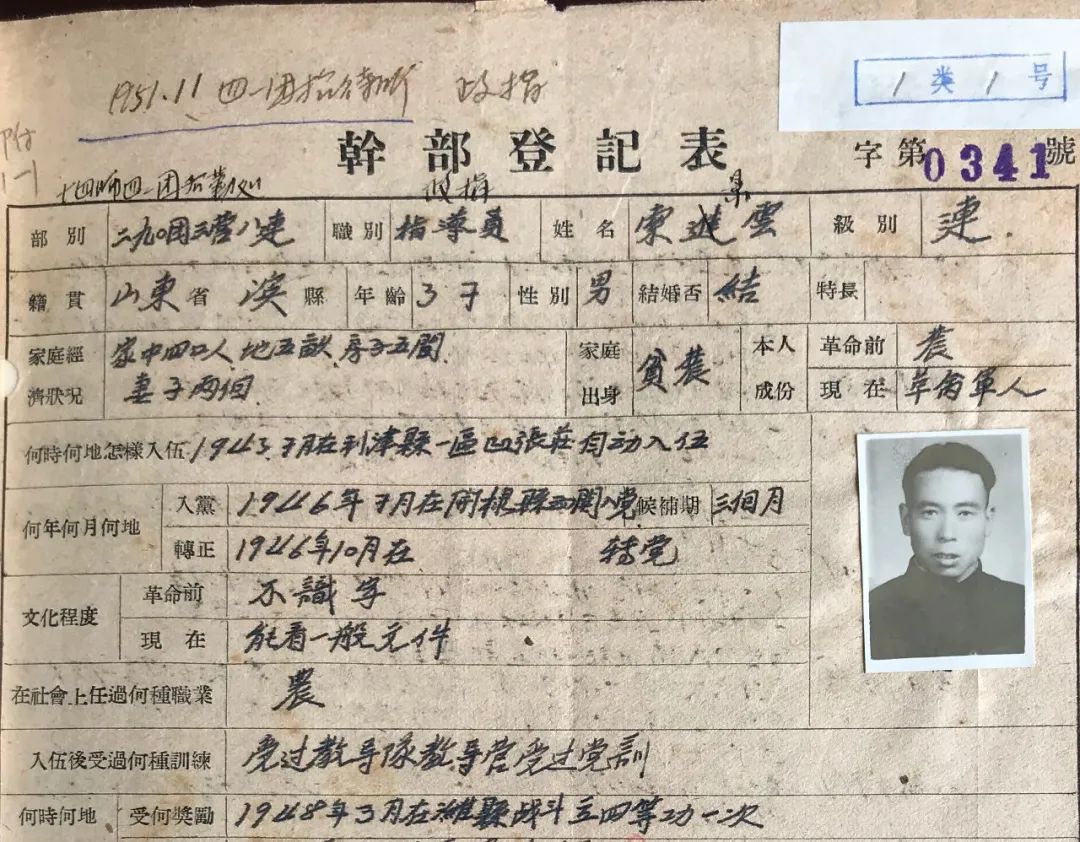 1类1号
1951.11 四一团招待所 政指
幹部登記表 字第0341號
政指
部别 二九〇团三营八连 職别 指導員 姓名 宋進雲 級别 連
籍貫 山東省 滨縣 年齡 37 性别 男 結婚否 結 特長
家庭經濟狀況 家中四口人 地五畝 房子五間
妻子两個
家庭出身 貧農 本人成份 革命前 農
現在 革命軍人
何時何地怎樣入伍 1943.7月在利津縣一區凹張莊自动入伍
何年何月何地 入黨 1946年7月在 縣 入党 候補期 三個月
轉正 1946年10月在 转党
文化程度 革命前 不識字
現在 能看一般文件
在社會上任過何種職業 農
入伍後受過何種訓練 受过教导队教导营受过党訓
何時何地 受何獎勵 1948年3月在濰縣战斗立四等功一次